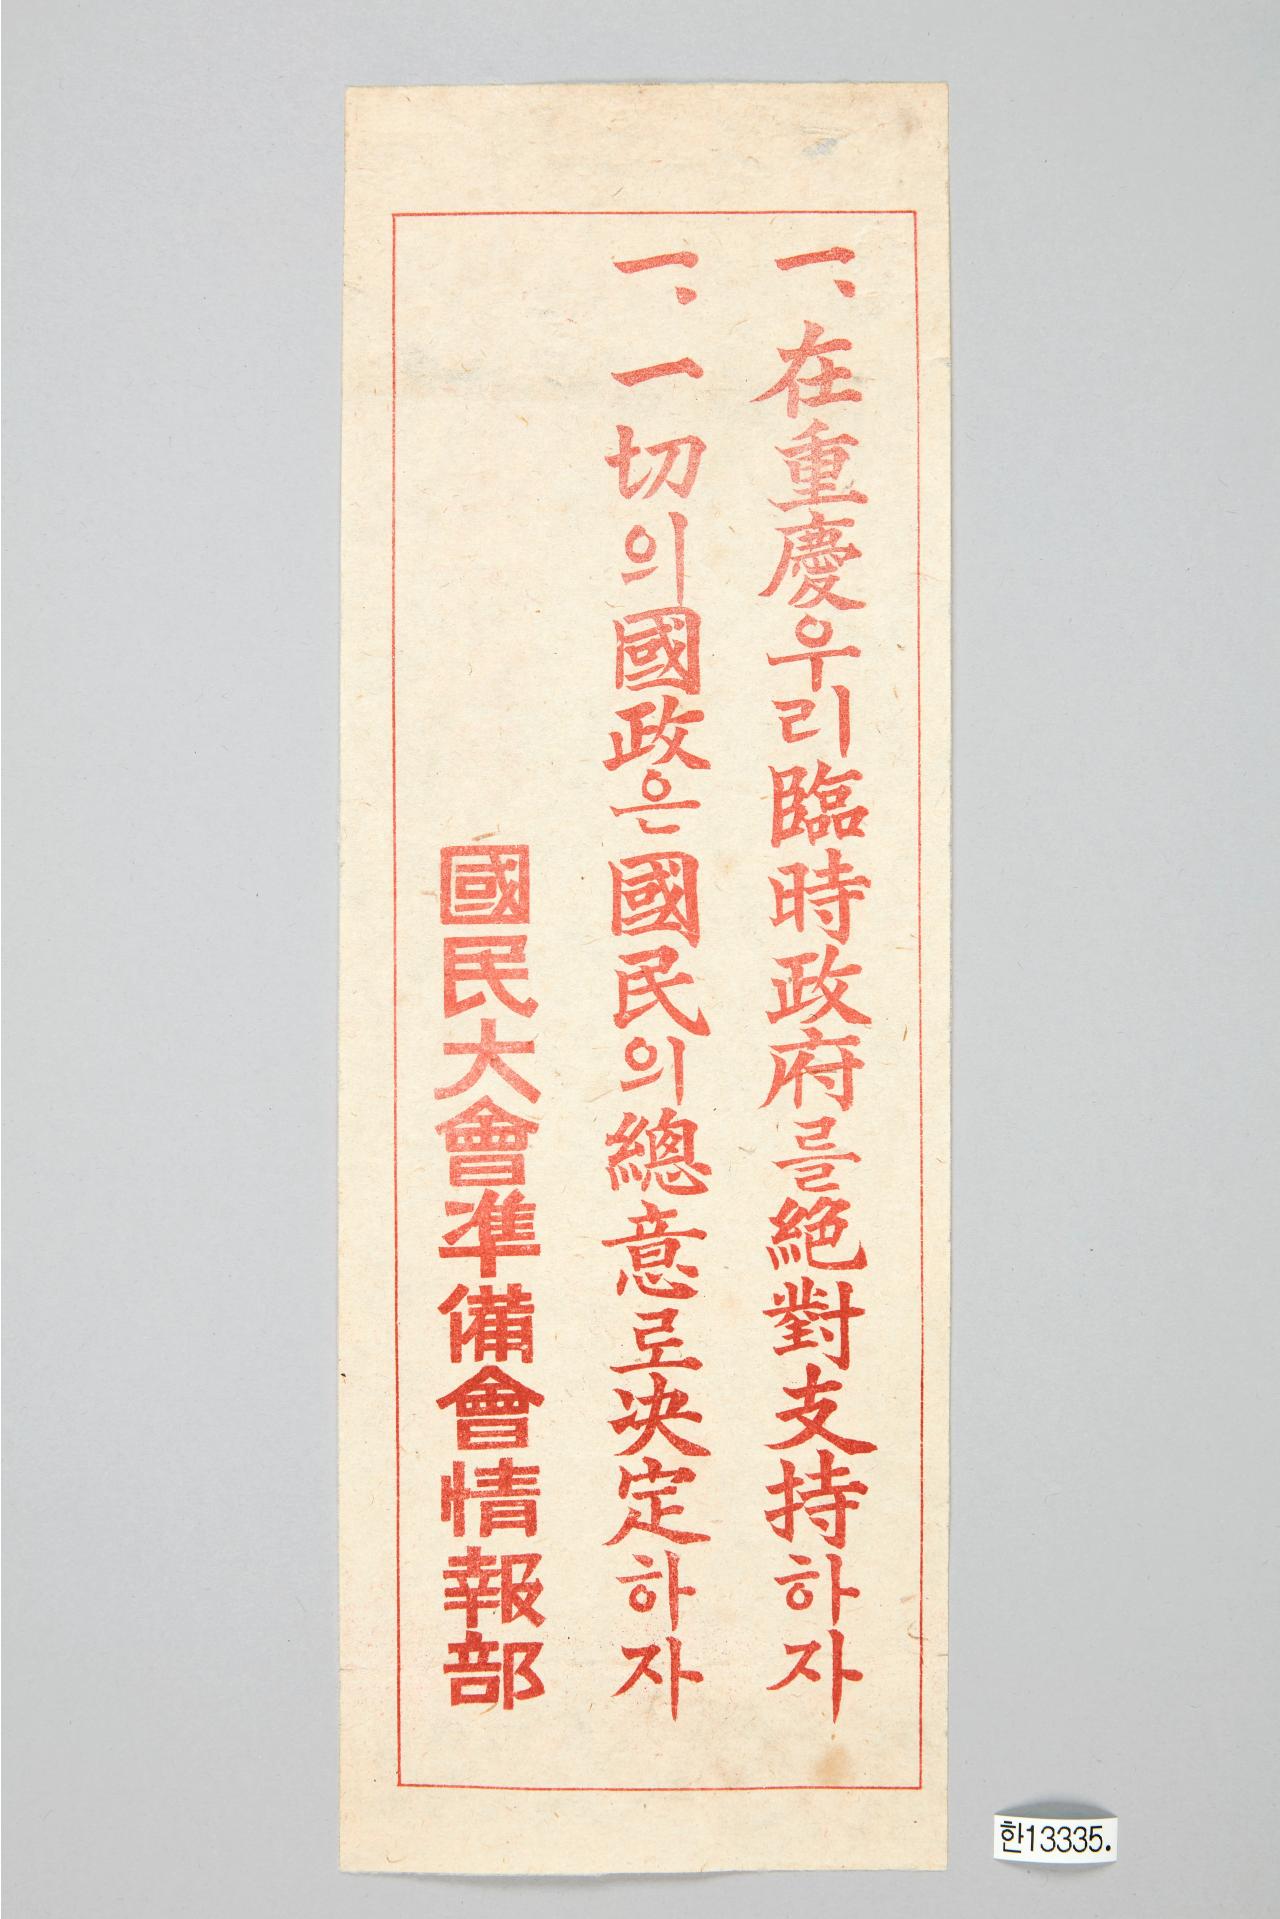 一、在重慶우리臨時政府를絶對支持하자
一、一切의國政은國民의總意로決定하자
國民大會準備會情報部
한13335.